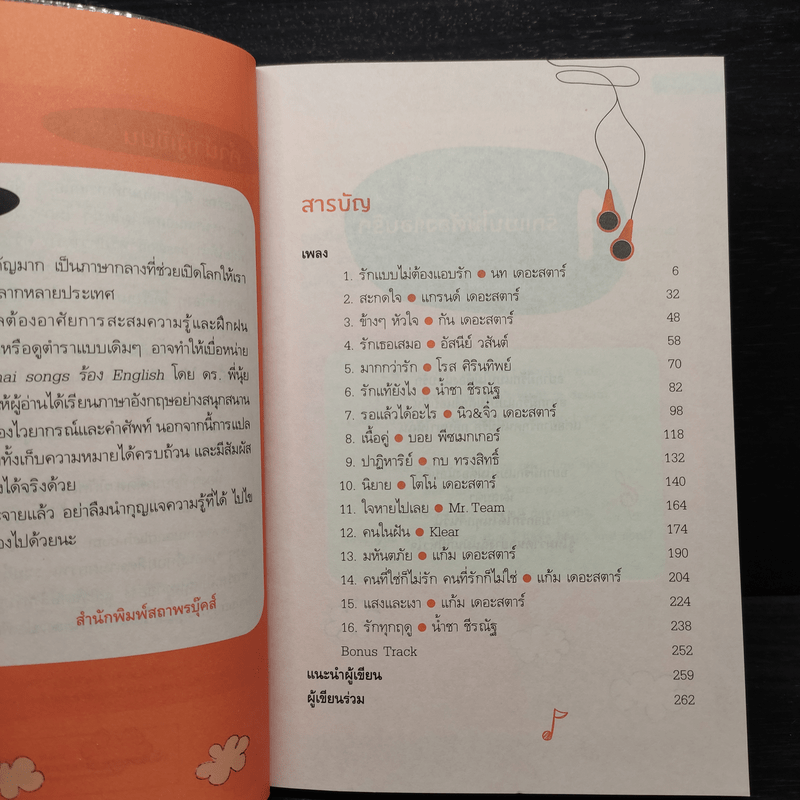 ัญมาก เป็นภาษากลางที่ช่วยเปิดโลกให้เรา
ลากหลายประเทศ
ลต้องอาศัยการสะสมความรู้และฝึกฝน
หรือดูตำราแบบเดิมๆ อาจทำให้เบื่อหน่าย
hai songs ร้อง English โดย ดร. พี่นุ้ย
ให้ผู้อ่านได้เรียนภาษาอังกฤษอย่างสนุกสนาน
องไวยากรณ์และคำศัพท์ นอกจากนี้การแปล
าทั้งเก็บความหมายได้ครบถ้วน และมีสัมผัส
งได้จริงด้วย
ะจายแล้ว อย่าลืมนำกุญแจความรู้ที่ได้ ไปไข
องไปด้วยนะ
สำนักพิมพ์สถาพรบุ๊คส์
สารบัญ
เพลง
1. รักแบบไม่ต้องแอบรัก ● นท เดอะสตาร์ 6
2. สะกดใจ ● แกรนด์ เดอะสตาร์ 32
3. ข้างๆ หัวใจ ● กัน เดอะสตาร์ 48
4. รักเธอเสมอ ● อัสนีย์ วสันต์ 58
5. มากกว่ารัก ● โรส ศิรินทิพย์ 70
6. รักแท้ยังไง ● น้ำชา ชีรณัฐ 82
7. รอแล้วได้อะไร ● นิว&จิ๋ว เดอะสตาร์ 98
8. เนื้อคู่ ● บอย พีซเมกเกอร์ 118
9. ปาฏิหาริย์ ● กบ ทรงสิทธิ์ 132
10. นิยาย ● โตโน่ เดอะสตาร์ 140
11. ใจหายไปเลย ● Mr. Team 164
12. คนในฝัน ● Klear 174
13. มหันตภัย ● แก้ม เดอะสตาร์ 190
14. คนที่ใช่ก็ไม่รัก คนที่รักก็ไม่ใช่ ● แก้ม เดอะสตาร์ 204
15. แสงและเงา ● แก้ม เดอะสตาร์ 224
16. รักทุกฤดู ● น้ำชา ชีรณัฐ 238
Bonus Track 252
แนะนำผู้เขียน 259
ผู้เขียนร่วม 262